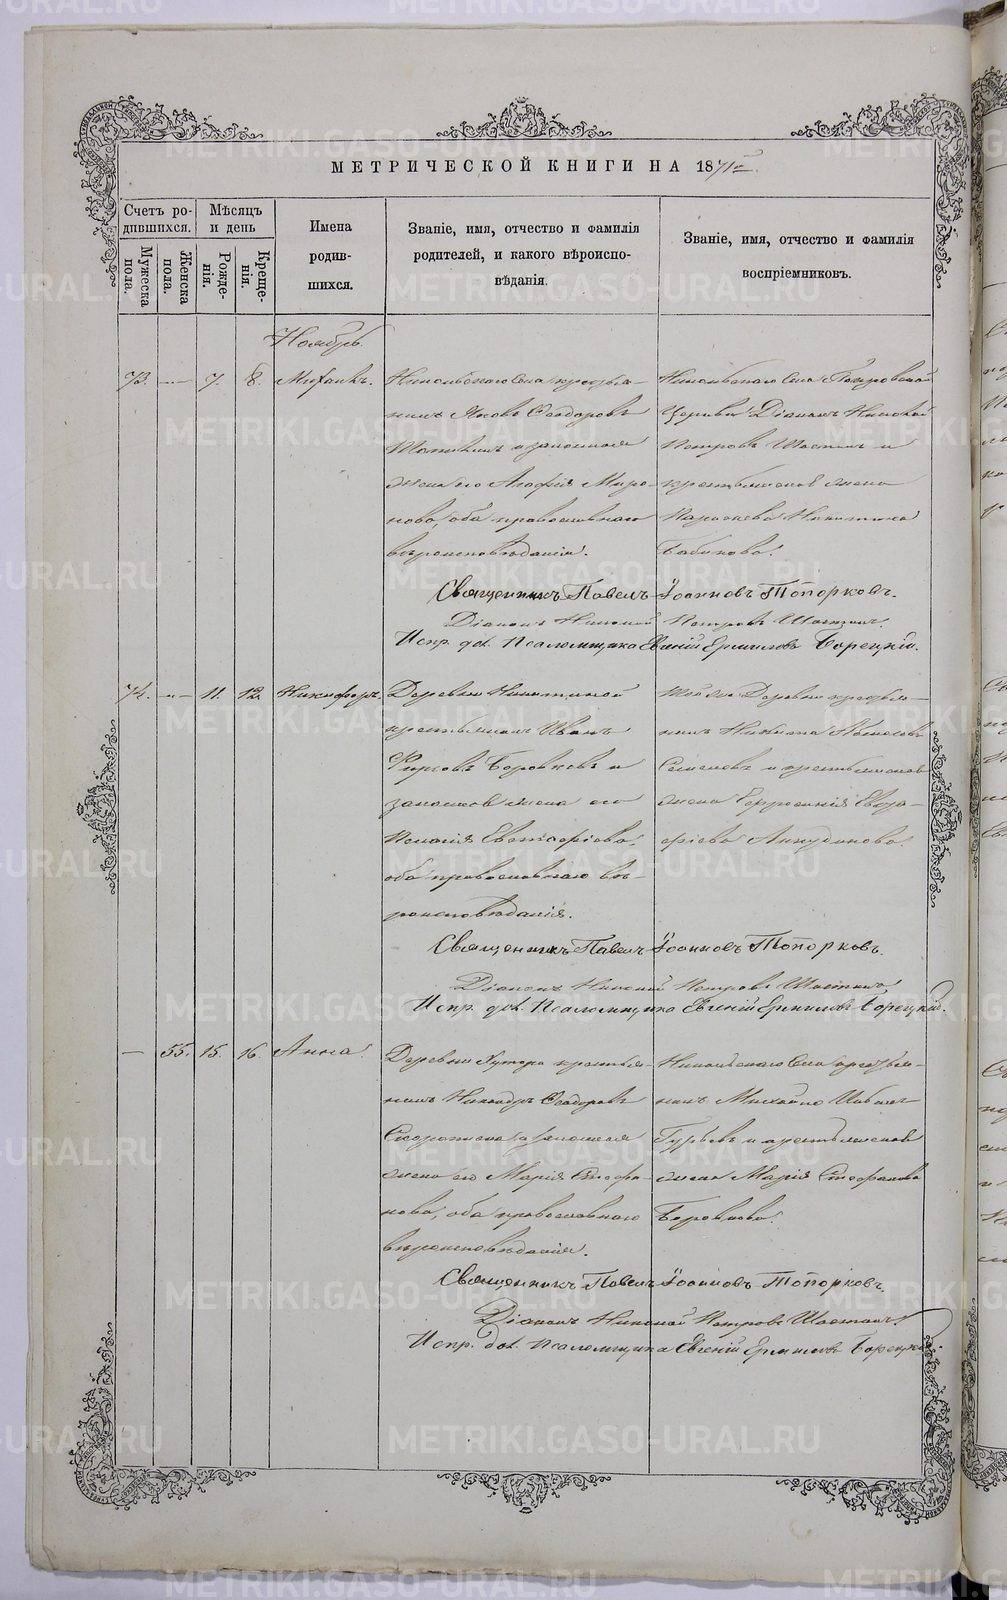 МЕТРИЧЕСКОЙ КНИГИ НА 1871й.
Счетъ ро-
дившихся.
Мужеска
пола.
Женска
пола.
Мѣсяцъ
и день
Рожде-
нія.
Креще-
нія.
Имена
родив-
шихся.
Званіе, имя, отчество и фамилія
родителей, и какого вѣроиспо-
вѣданія.
Званіе, имя, отчество и фамилія
воспріемниковъ.
Ноябрь.
73. — 7. 8. Михаилъ.
Никольскаго Села крестья-
нинъ Яковъ Ѳеодоровъ
и законная
жена его Агафія Миро-
нова, оба православнаго
вѣроисповѣданія.
Никольскаго Села Покровской
Церкви Діаконъ Николай
Петровъ Шастинъ и
крестьянская жена
Параскева Никитина
Бабикова.
Священникъ Павелъ Іоанновъ Топорковъ.
Діаконъ Николай Петровъ Шастинъ.
Испр. дол. Псаломщика Евгеній Ермиловъ Борецкій.
74. — 11. 12. Никифоръ.
Деревни Никитиной
крестьянинъ Иванъ
Фирсовъ Боровковъ и
законная жена его
Пелагія Евстафіева,
оба православнаго вѣ-
роисповѣданія.
Той же Деревни крестья-
нинъ Никита
Семеновъ и крестьянская
жена Евгра-
фіева Анкудинова.
Священникъ Павелъ Іоанновъ Топорковъ.
Діаконъ Николай Петровъ Шастинъ.
Испр. дол. Псаломщика Евгеній Ермиловъ Борецкій.
— 55. 15. 16. Анна.
Деревни Хутора крестья-
нинъ Никандръ Ѳеодоровъ
и законная
жена его Марія Стефа-
нова, оба православнаго
вѣроисповѣданія.
Никольскаго Села крестья-
нинъ Михаилъ
Гурьевъ и крестьянская
жена Марія Стефанова
Боровкова.
Священникъ Павелъ Іоанновъ Топорковъ.
Діаконъ Николай Петровъ Шастинъ.
Испр. дол. Псаломщика Евгеній Ермиловъ Борецкій
METRIKI.GASO-URAL.RU